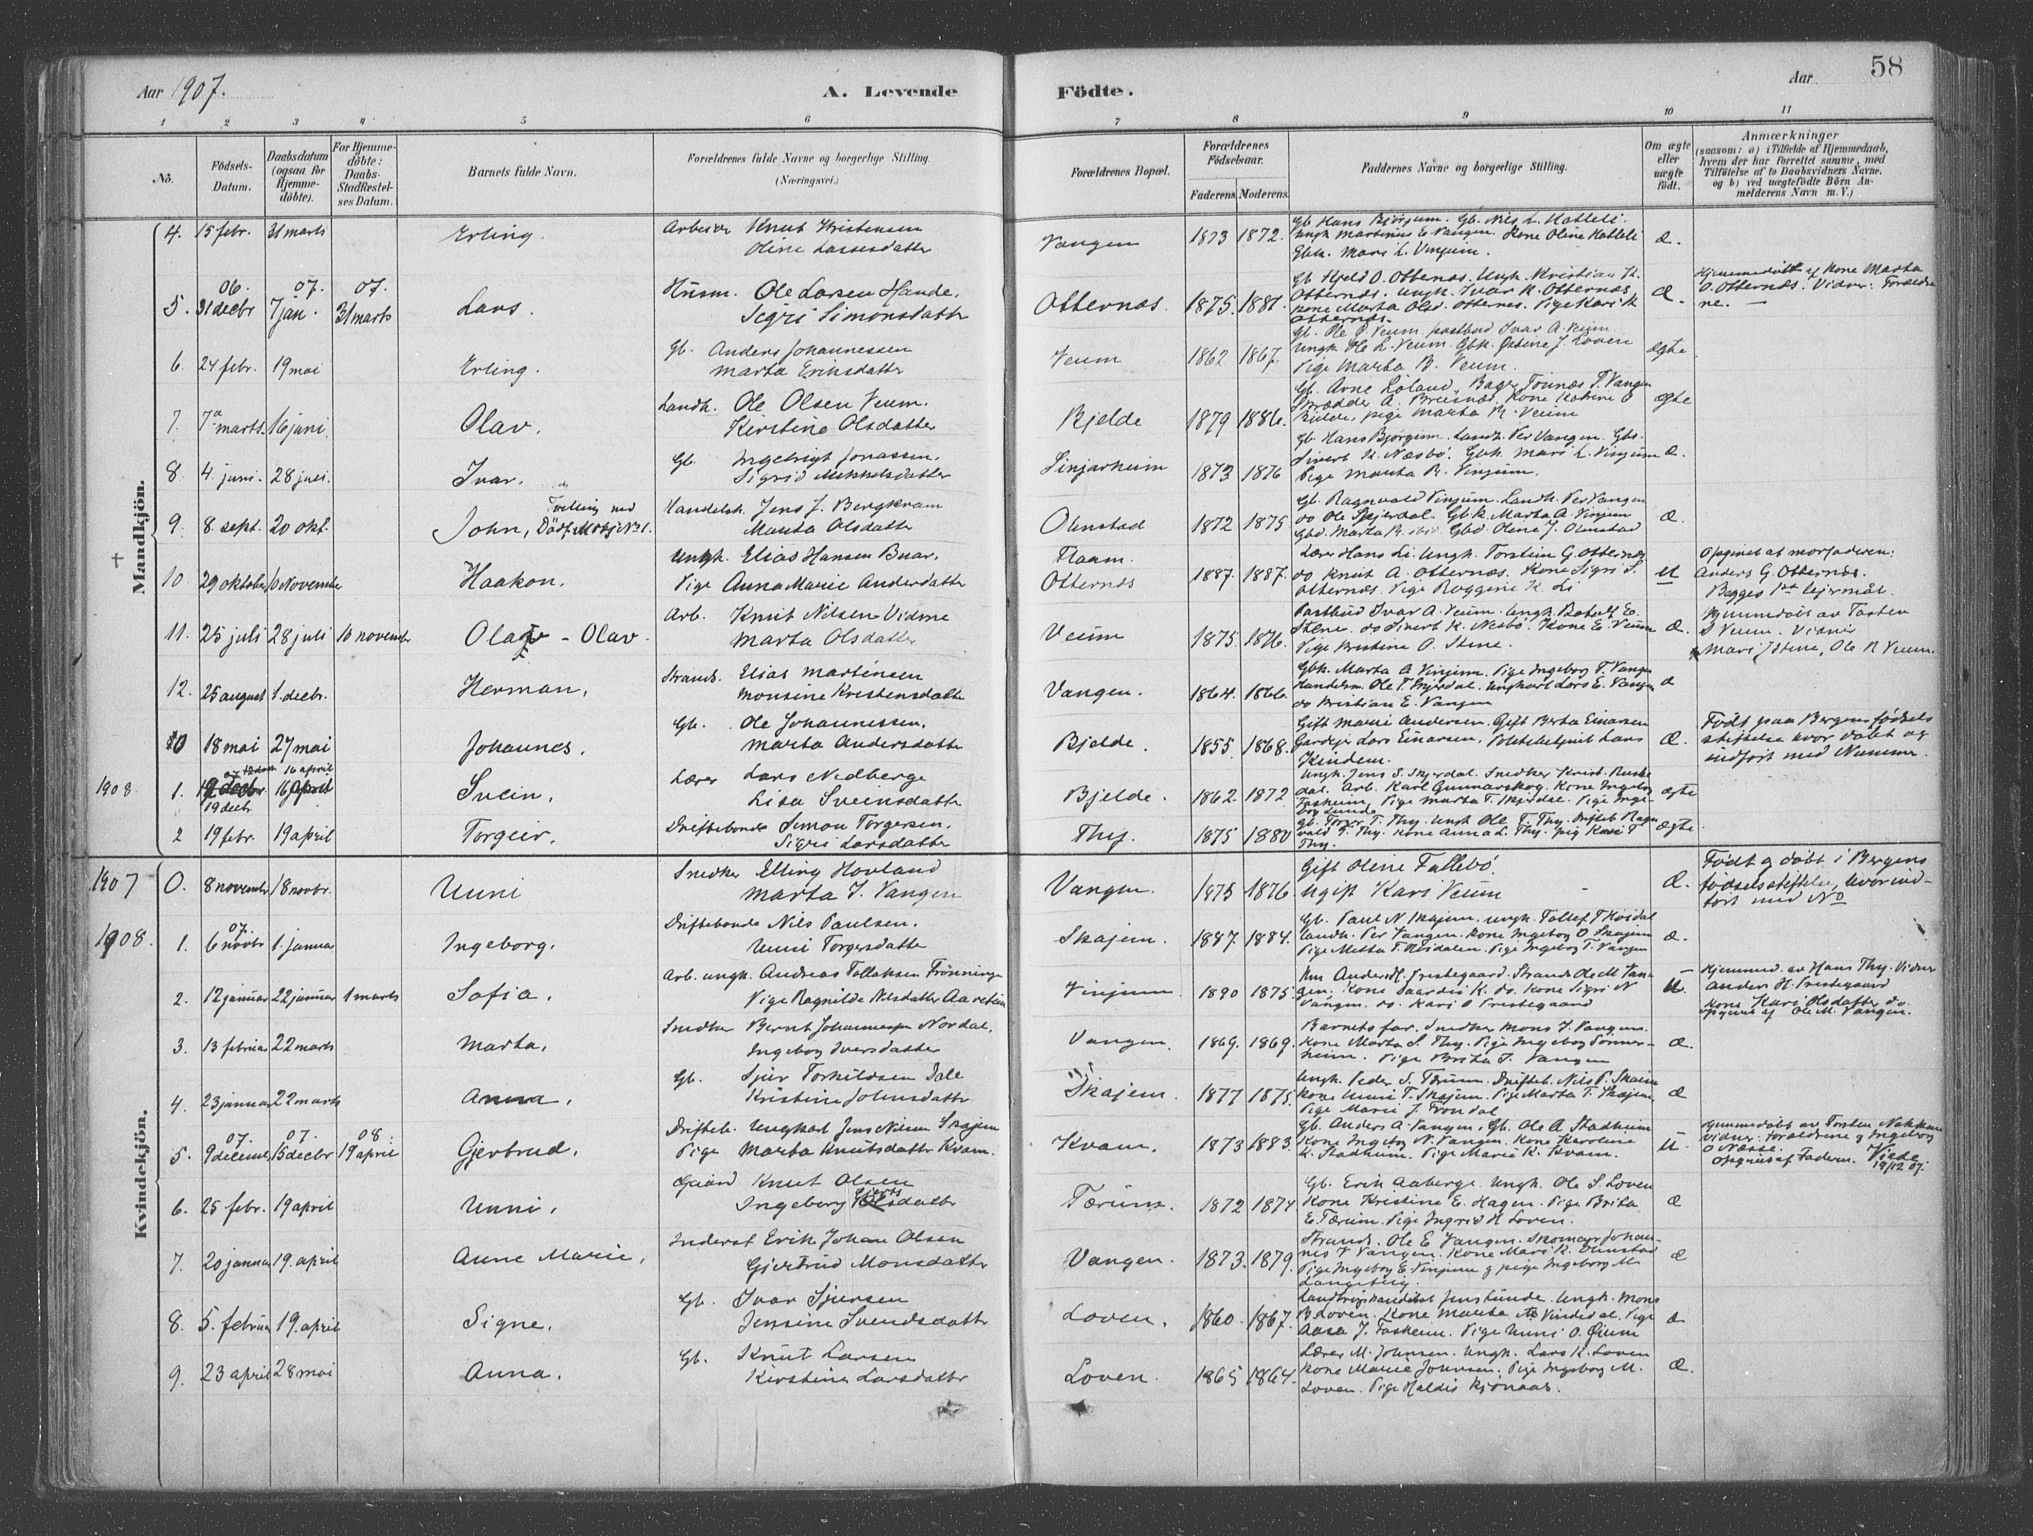 Aar 1907.
A. Levende
Födte.
Aar
58
1 2 3 4 5 6 7 8 9 10 11
No.
Födsels-Datum.
Daabsdatum (ogsaa for Hjemmedöbte).
For Hjemmedöbte: Daabs-Stadfæstelses Datum.
Barnets fulde Navn.
Forældrenes fulde Navne og borgerlige Stilling.
(Næringsvei.)
Forældrenes Bopæl.
Forældrenes Födselsaar.
Faderens. Moderens.
Faddernes Navne og borgerlige Stilling.
Om ægte eller uægte födt.
Anmærkninger
(saasom: a) i Tilfælde af Hjemmedaab, hvem der har forrettet samme, med Tilföielse af to Daabsvidners Navne. og b) ved uægtefödte Börn Anmelderens Navn m. V.)
Mandkjön.
4. 15 febr. 31 marts Erling. Arbeider Knut Kristensen
Oline Lassesdatter Vangen 1873 1872. Gb. Hans Bjørgum. Gb. Nils L. Hatleli.
Ungk. Martinus E. Vangen. Kone Oline Hatleli
Gbk. Mari L. Vinjum. Æ.
06. 07. 07.
5. 31 decbr 7 jan. 31 marts Lars. Husm. Ole Larsen Hande.
Sigri Simonsdatter Otternæs. 1875. 1881. Gb. Kjeld O. Otternæs. Ungk. Kristian H.
Otternæs. Ungk. Ivar K. Otternæs,
Kone Marta Olsd. Otternes. Pige Kari K
Otternæs. Æ. Hjemmedøbt af Kone Marta
O. Otternæs. Vidner: Forældre
ne.
6. 24 febr. 19 mai Erling. Gb. Anders Johannessen
Marta Eriksdatter Veum 1862 1867. Gb. Ole P. Veum, postbud Ivar A. Veum
Ungk. Ole L. Veum. Gbk. Østene J. Loven
Pige Marta B. Veum. ægte
7. 7 marts. 16 juni Olav. Landh. Ole Olsen Veum.
Kerstine Olsdatter Bjelde 1879 1886. Gb. Arne Loland, Bager Tønnes T. Vangen
Skrædder A. Brusnæs, Kone Katrine O
Bjelde, pige Marta R. Veum ægte
8 4. juni. 28 juli. Ivar. Gb. Ingebrigt Jonassen.
Sigrid Mikkelsdatter Sinjarheim 1873 1876 Gb. Hans Bjørgum. Landh. Per Vangen. Gbs.
Sivert K. Næsbø. Gbk. Mari L. Vinjum
Pige Marta R. Vinjum. Æ.
9. 8. sept. 20 okt. John, Tvilling med
Dødf. M. Handelsb. Jens J. Bergkvam
Marta Olsdatter Olmstad 1872 1875 Gb. Ragnvald Vinjum. Landh. Per Vangen
do Ole Skjerdal. Gbk. Marta A Vinjum
Gbd. Marta R. Gbd. Oline J. Olmstad Æ
10 29 oktober 10 November Haakon. Ungk. Elias Hansen Brær.
Pige Anna Marie Andersdatter Flaam.
Otternæs 1887. 1887. Lærer Hans Li. Ungk. Torstein G. Otternæs
do Knut A. Otternæs. Kone Sigri S.
Otternæs. Pige Roggine K Li U Opgivet af morfaderen:
Anders G. Otternæs.
Begges 1ste leiermål.
11. 25 juli 28 juli 10 november Olav - Olav. Arb. Knut Nilsen Vidme
Marta Olsdatter Veum 1875. 1876. Postbud Ivar A. Veum. Ungk. Botolf E.
Stene. do Sivert K. Nesbø. Kone E. Veum
Pige Kristine O. Stene. Æ. Hjemmedøbt av Torsten
S Veum. Vidner
Mari Østene, Ole R Veum.
12. 25 august 1. decbr. Herman, Strands. Elias Martensen
Monsine Kristensdatter Vangen. 1864. 1866. Gbk. Marta A Vinjum, Pige Ingeborg T. Vangen
Handelsm. Ole T. Skjerdal. Ungkarl Lars E. Vangen
do Kristian E. Vangen Æ
0 18 mai 27 mai Johannes. Gb. Ole Johannessen.
Marta Andersdatter Bjelde. 1855. 1868. Gift Marie Andersen. Gift Berta Einarsen
Gardejer Lars Einarsen, Lars
Kindem. Æ. Født paa Bergens fødsels
stiftelse hvor døbt og
indført med Nummer.
1908 1. 07 16 april
19 decbr Svein. Lærer Lars Nedberge
Lisa Sveinsdatter Bjelde. 1862 1872 Ungk. Jens S. Skjerdal. Snedker Krist. Ruske
dal. Arb. Karl Gunnarskog. Kone Ingeborg
Fosheim, Pige Marta T. Skjerdal. Pige Inge-
borg Lunde ægte
2 19 febr. 19 april Torgeir. Driftebonde Simon Torgersen.
Sigri Larsdatter Thy. 1875 1880 Gb. Torger T. Thy. Ungk Ole T. Thy. Drifteb Ragn
vald T. Thy. Kone Anna L. Thy. Pig Kari T
Thy. ægte
Kvindekjön.
1907 0. 8 november 18 novbr. Unni Snedker Elling Hovland
Marta J. Vangen Vangen. 1875 1876. Gift Oline Fallebø.
Ugift Kari Veum Æ. Født og døbt i Bergens
fødselsstiftelse, hvor ind-
ført med No
1908. 1. 07.
6 novbr 1. januar Ingeborg. Driftebonde Nils Paulsen.
Unni Torgersdatter Skajem. 1887. 1884. Gb. Paul N Skajem. Ungk. Tollef T Kosdal
Landh. Per Vangen. Kone Ingeborg O Skajem
Pige Metta T. Kosdalen. Pige Ingeborg T. Vangen Æ.
2. 12 januar 22 januar 1 marts Sofia. Arb. ungk. Andreas Tollaksen Frønninge
Pige Ragnilde Nilsdatter Aardtun Vinjum 1890 1875. Anders H. Prestegaard. Strands. Ole M. Van-
gen. Kone K. do. Kone Sigri N
Vangen do. Kari O Prestegaard U. Hjemmed. av Hans Thy. Vidner
Anders H. Prestegaard
Kone Kari Olsdatter do
opgivet af Ole M. Vangen.
3. 13 februar 22 marts Marta. Snedker Bernt Johannesen Nordal.
Ingeborg Iversdatter Vangen. 1869. 1869. Barnets far. Snedker Mons J. Vangen.
Kone Marta S. Thy. Pige Ingeborg Sønner-
heim. Pige Brita T. Vangen Æ.
4. 23 januar 22 marts Anna. Gb. Sjur Torkildsen Dale
Kristine Johnsdatter Skajem. 1877 1875. Ungk. Peder S. Tærum. Drifteb. Nils P. Skaim
Kone Unni T. Skajem. Pige Marta T. Skajem
Pige Marie J. Frondal Æ
5. 07. 07. 08
9 decemer 15 decbr 19 april Gjertrud. Drifteb. Ungkarl Jens Nilsen Skajem
Pige Marta Knutsdatter Kvam. Kvam. 1873 1883. Gb. Anders A. Vangen, Gb. Ole A. Stadheim
Kone Ingeborg N. Vangen. Kone Karoline
K. Stadheim. Pige Marie K. Kvam. U. Hjemmedøbt av Torsten Nakken
vidner. Forældrene og Ingeborg
O Næsse.
Opgivet af Faderen. Viede
19/12 07.
6. 25 febr. 19 april Unni. Gaard Knut Olsen
Ingeborg datter Tærum. 1872 1874 Gb. Erik Aaberge. Ungk. Ole S. Loven
Kone Kristine E. Hagen. Pige Brita
E. Tærum. Pige Ingrid H Loven. Æ
7. 20 januar 19. april Anne Marie. Inderst Erik Johan Olsen
Gjertrud Monsdatter Vangen. 1873. 1879. Strands. Ole E Vangen. Skomager Johan-
nes J Vangen. Kone Mari K. Olmstad
Pige Ingeborg E. Vinjum og pige Ingeborg M
Langeteig. Æ
8. 5. februar 19. april Signe. Gb. Ivar Sjursen
Jensine Svendsdatter Loven. 1860. 1867. Landbrugskandidat Jens Lunde. Ungk. Mons
B Loven. Kone Marta Vindedal. Pige
Aasa J. Foshem. Pige Unni O. Øium Æ
9. 23 april 28 mai Anna. Gb. Knut Larsen
Kirstine Larsdatter Loven. 1865 1864. Lærer M. Johnsen. Ungk. Lars K. Loven
Kone Marie Johnsen. Pige Ingeborg M.
Loven. Pige Haldis Kjønaas. Æ.